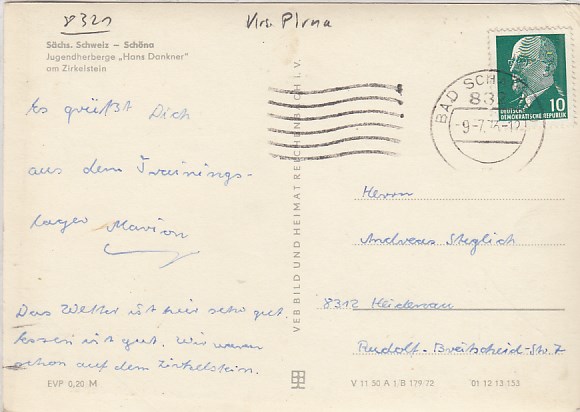 8321
Krs. Pirna
Sächs. Schweiz – Schöna
Jugendherberge „Hans Dankner"
am Zirkelstein
Es grüßt Dich
aus dem Trainings-
lager Marion
Das Wetter ist hier sehr gut.
Essen ist gut. Wir waren
schon auf dem Zirkelstein.
EVP 0,20 M
VEB BILD UND HEIMAT REICHENBACH I. V.
BAD SCH
832
-9-7.
10
DEUTSCHE
DEMOKRATISCHE REPUBLIK
Herrn
Andreas Steglich
8312 Heidenau
Rudolf-Breitscheid-Str. 7
V 11 50 A 1/B 179/72
01 12 13 153